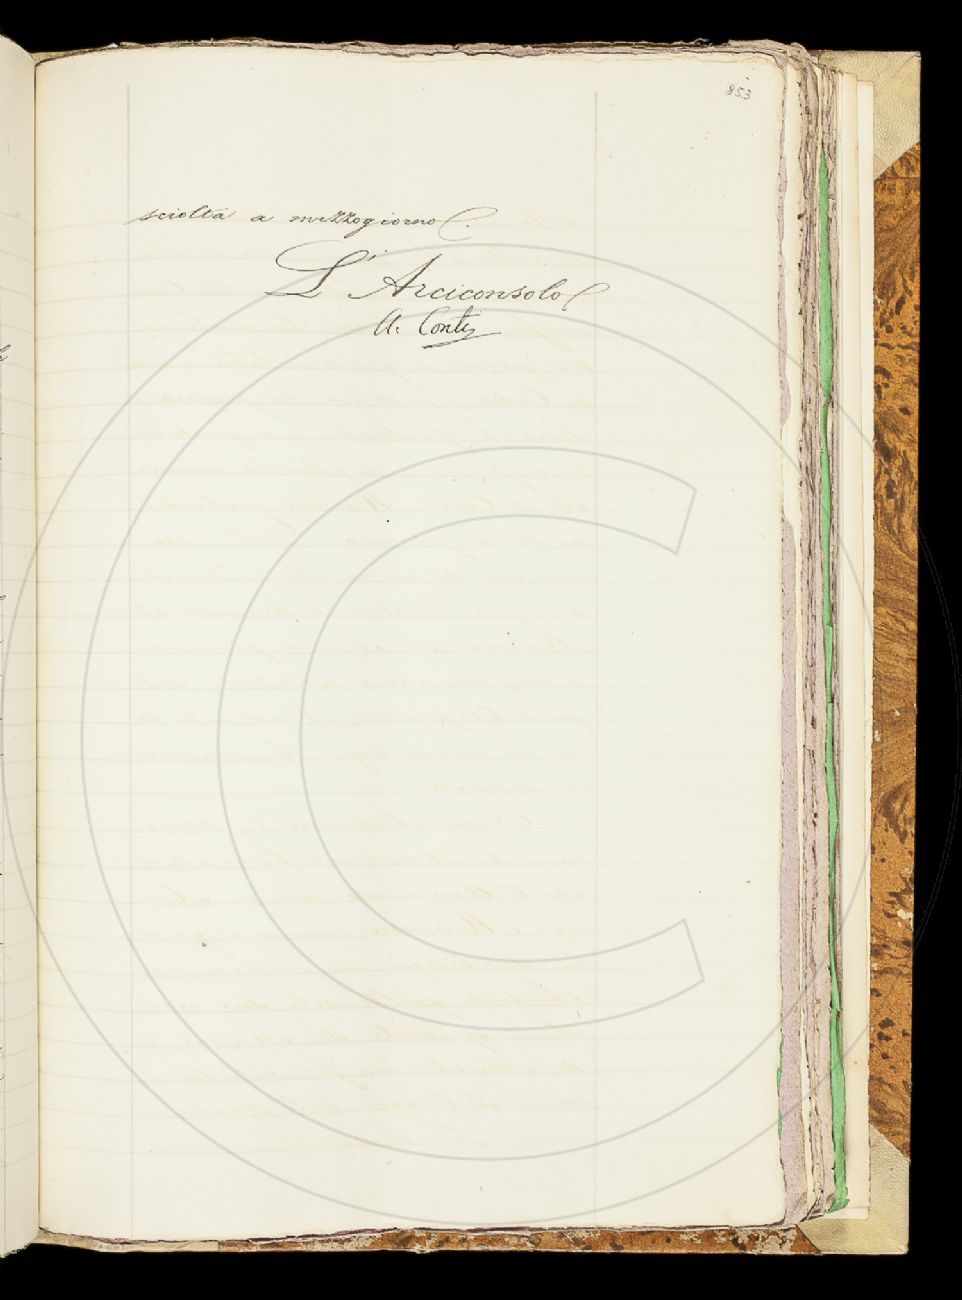 853
sciolta a mezzogiorno.
L'Arciconsolo
A. Conti